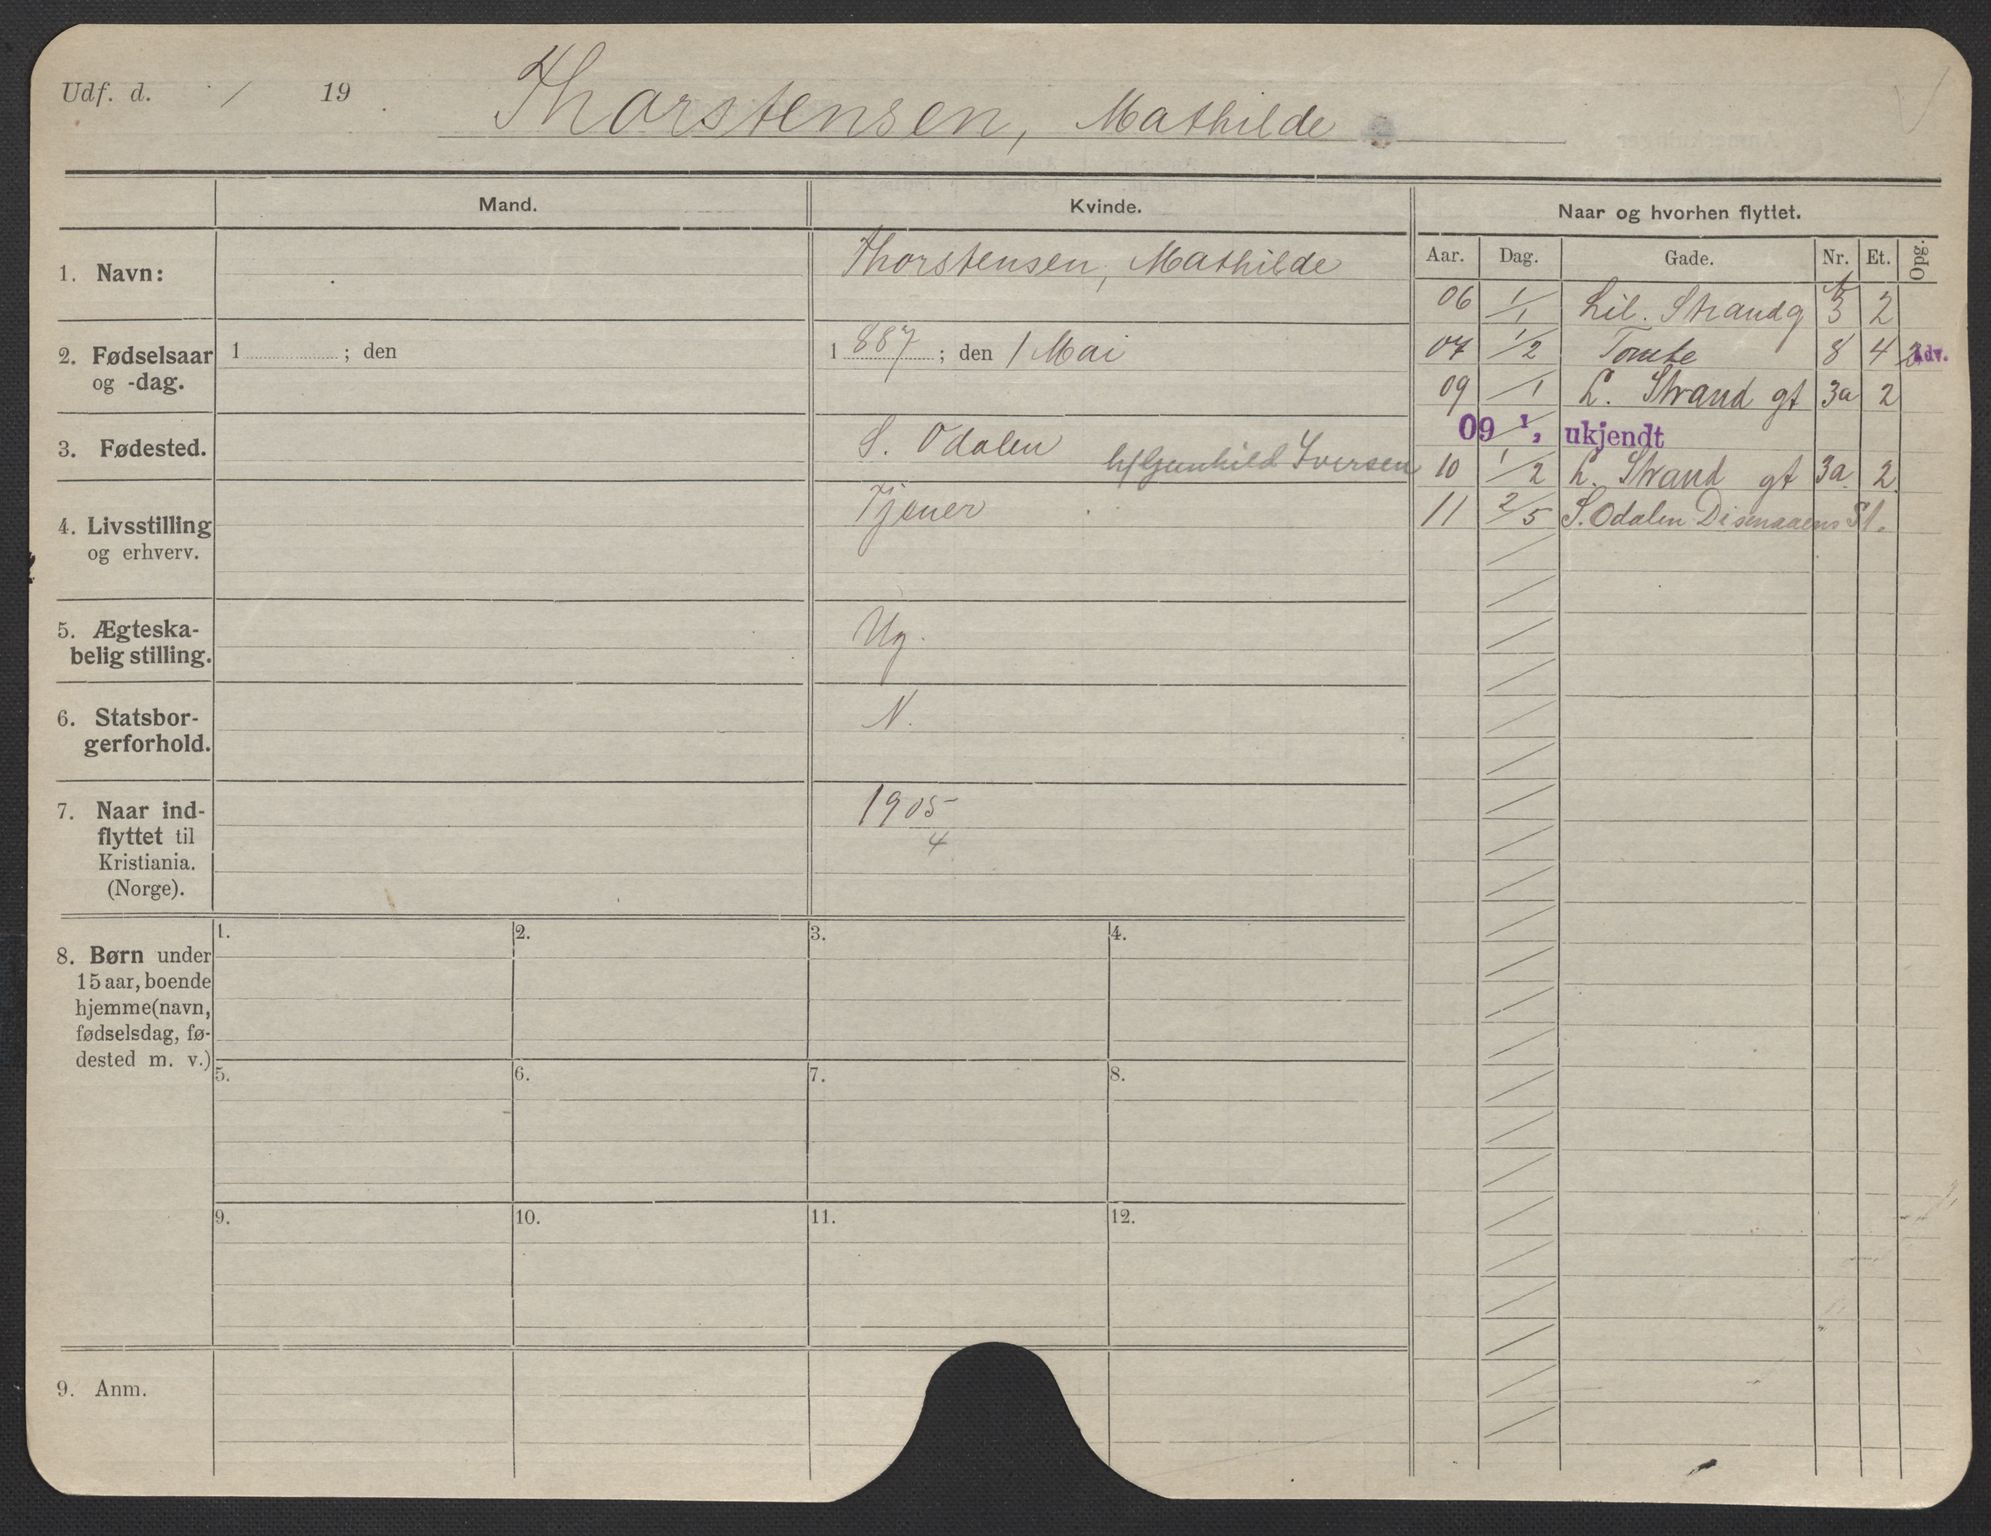 Udf. d. / 19
Thorstensen, Mathilde
Mand. Kvinde. Naar og hvorhen flyttet.
Aar. Dag. Gade. Nr. Et. Opg.
1. Navn: Thorstensen, Mathilde
2. Fødselsaar
og -dag.
1 ; den
1887 ; den 1 Mai
3. Fødested. S. Odalen
h/Gunhild Iversen
4. Livsstilling
og erhverv.
Tjener
5. Ægteska-
belig stilling.
Ug.
6. Statsbor-
gerforhold.
N.
7. Naar ind-
flyttet til
Kristiania.
(Norge).
1905
4
06 1/1 Lil. Strandg 3 2
07 1/2 Tomte 8 4 Adv.
09 /1 L. Strand gt 3a 2
09 1/2 ukjendt
10 1/2 L. Strand gt 3a 2
11 2/5 S. Odalen Disenaaens St.
8. Børn under
15 aar, boende
hjemme (navn,
fødselsdag, fø-
dested m. v.)
1. 2. 3. 4.
5. 6. 7. 8.
9. 10. 11. 12.
9. Anm.